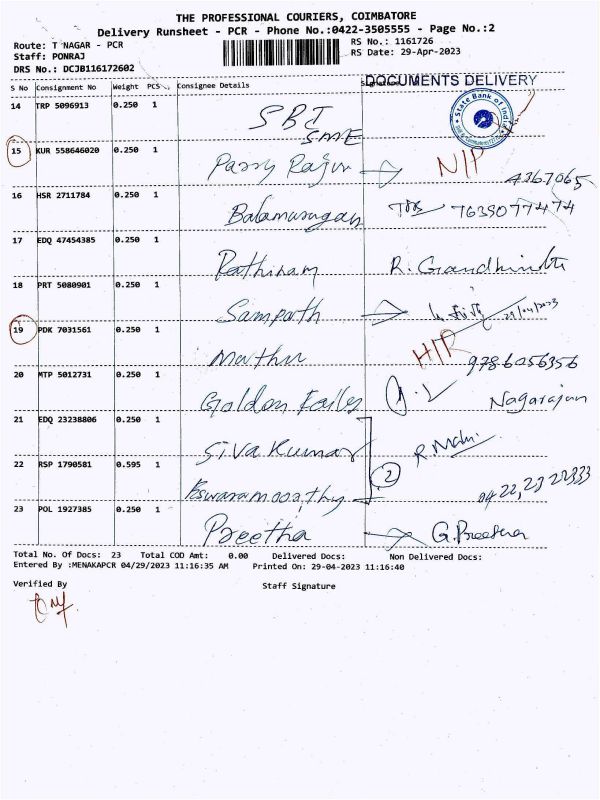 THE PROFESSIONAL COURIERS, COIMBATORE
Delivery Runsheet - PCR - Phone No.:0422-3505555 - Page No.:2
Route: T NAGAR - PCR
RS No.: 1161726
Staff: PONRAJ
RS Date: 29-Apr-2023
DRS No.: DCJB116172602
DOCUMENTS DELIVERY
S No Consignment No Weight PCS Consignee Details
14 TRP 5096913 0.250 1 SBI
SME
State Bank of India
15 KUR 558646020 0.250 1 N/P
4367065
16 HSR 2711784 0.250 1 Balamurugan 7639077474
17 EDQ 47454385 0.250 1 Rathinam R. Gandhi
18 PRT 5080901 0.250 1 Sampath 29/04/2023
19 PDK 7031561 0.250 1 Mathu H/P 9786056356
20 MTP 5012731 0.250 1 Golden Nagarajan
21 EDQ 23238806 0.250 1 Siva Kumar R. Mani
22 RSP 1790581 0.595 1 Eswaramoorthy 2
23 POL 1927385 0.250 1 Preetha G. Preetha
Total No. Of Docs: 23 Total COD Amt: 0.00 Delivered Docs: Non Delivered Docs:
Entered By :MENAKAPCR 04/29/2023 11:16:35 AM Printed On: 29-04-2023 11:16:40
Verified By Staff Signature